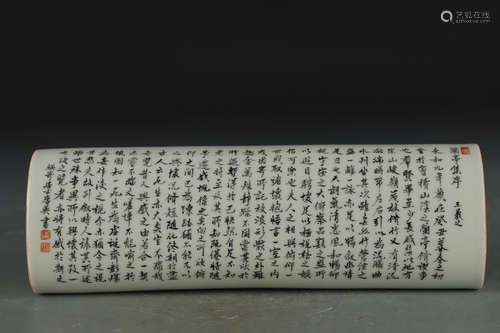 艺狐在线
蘭亭集序 王羲之
永和九年歲在癸丑暮春之初
會於會稽山陰之蘭亭修禊事
也群賢畢至少長咸集此地有
崇山峻嶺茂林修竹又有清流
激湍映帶左右引以為流觴曲
水列坐其次雖無絲竹管弦之
盛一觴一詠亦足以暢敘幽情
是日也天朗氣清惠風和暢仰
觀宇宙之大俯察品類之盛所
以遊目騁懷足以極視聽之娛
信可樂也夫人之相與俯仰一
世或取諸懷抱晤言一室之內
或因寄所託放浪形骸之外雖
趣舍萬殊靜躁不同當其欣於
所遇暫得於己快然自足不知
老之將至及其所之既倦情隨
事遷感慨係之矣向之所欣俯
仰之間已為陳跡猶不能不以
之興懷況修短隨化終期於盡
古人云死生亦大矣豈不痛哉
每覽昔人興感之由若合一契
未嘗不臨文嗟悼不能喻之於
懷固知一死生為虛誕齊彭殤
為妄作後之視今亦猶今之視
昔悲夫故列敘時人錄其所述
雖世殊事異所以興懷其致一
也後之覽者亦將有感於斯文